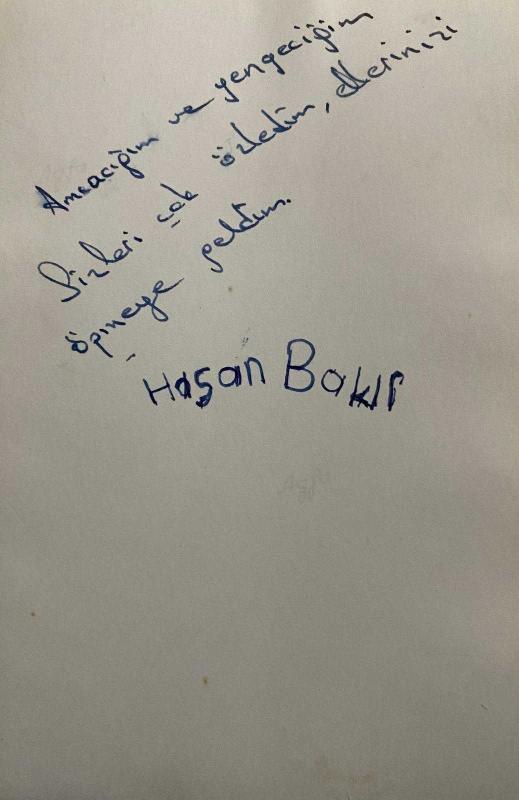 Amcacığım ve yengeciğim
Sizleri çok özledim, ellerinizi
öpmeye geldim.
Hasan Bakır